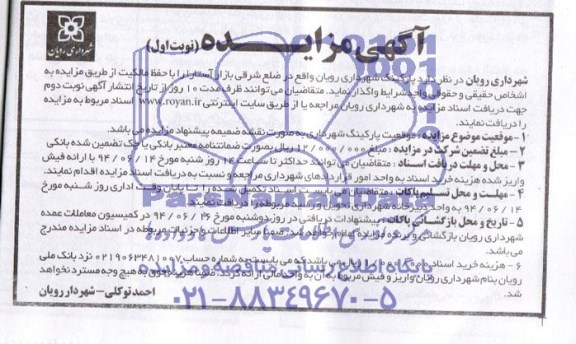 شهرداری رویان
آگهی مزایـــده (نوبت اول)
شهرداری رویان در نظر دارد پارکینگ شهرداری رویان واقع در ضلع شرقی بازار را با حفظ مالکیت از طریق مزایده به
اشخاص حقیقی و حقوقی واجد شرایط واگذار نماید. متقاضیان می توانند ظرف مدت ۱۰ روز از تاریخ انتشار آگهی نوبت دوم
جهت دریافت اسناد مزایده به شهرداری رویان مراجعه یا از طریق سایت اینترنتی www.royan.ir اسناد مربوط به مزایده
را دریافت نمایند.
۱- موقعیت موضوع مزایده : موقعیت پارکینگ شهرداری به صورت نقشه ضمیمه پیشنهاد مزایده می باشد.
۲- مبلغ تضمین شرکت در مزایده : مبلغ ۱۲/۰۰۰/۰۰۰ ریال بصورت ضمانتنامه معتبر بانکی یا چک تضمین شده بانکی
۳- محل و مهلت دریافت اسناد : متقاضیان می توانند حداکثر تا ساعت ۱۴ روز شنبه مورخ ۹۴/۰۶/۱۴ با ارائه فیش
واریز شده هزینه خرید اسناد به واحد امور قراردادهای شهرداری مراجعه و نسبت به دریافت اسناد مزایده اقدام نمایند.
۴- مهلت و محل تسلیم پاکات : متقاضیان می بایست اسناد تکمیل شده را تا پایان وقت اداری روز شنبه مورخ
۹۴/۰۶/۱۴ به واحد دبیرخانه شهرداری تحویل و رسید مربوطه را دریافت نمایند.
۵- تاریخ و محل بازگشائی پاکات : پیشنهادات دریافتی در روز دوشنبه مورخ ۹۴/۰۶/۱۶ در کمیسیون معاملات عمده
شهرداری رویان بازگشائی و برنده مزایده اعلام خواهد شد. ضمنا سایر اطلاعات و جزئیات مربوطه در اسناد مزایده مندرج
می باشد.
۶- هزینه خرید اسناد ریال می باشد که می بایست به شماره حساب ۰۲۱۹۰۶۳۴۸۱۰۰۷ نزد بانک ملی
رویان بنام شهرداری رویان واریز و فیش مربوط به آن به واحد مالی ارائه گردد. به هیچ وجه مسترد نخواهد
شد.
احمد توکلی - شهردار رویان
پایگاه اطلاع رسانی مناقصه و مزایده
۰۲۱-۸۸۳۴۹۶۷۰-۵